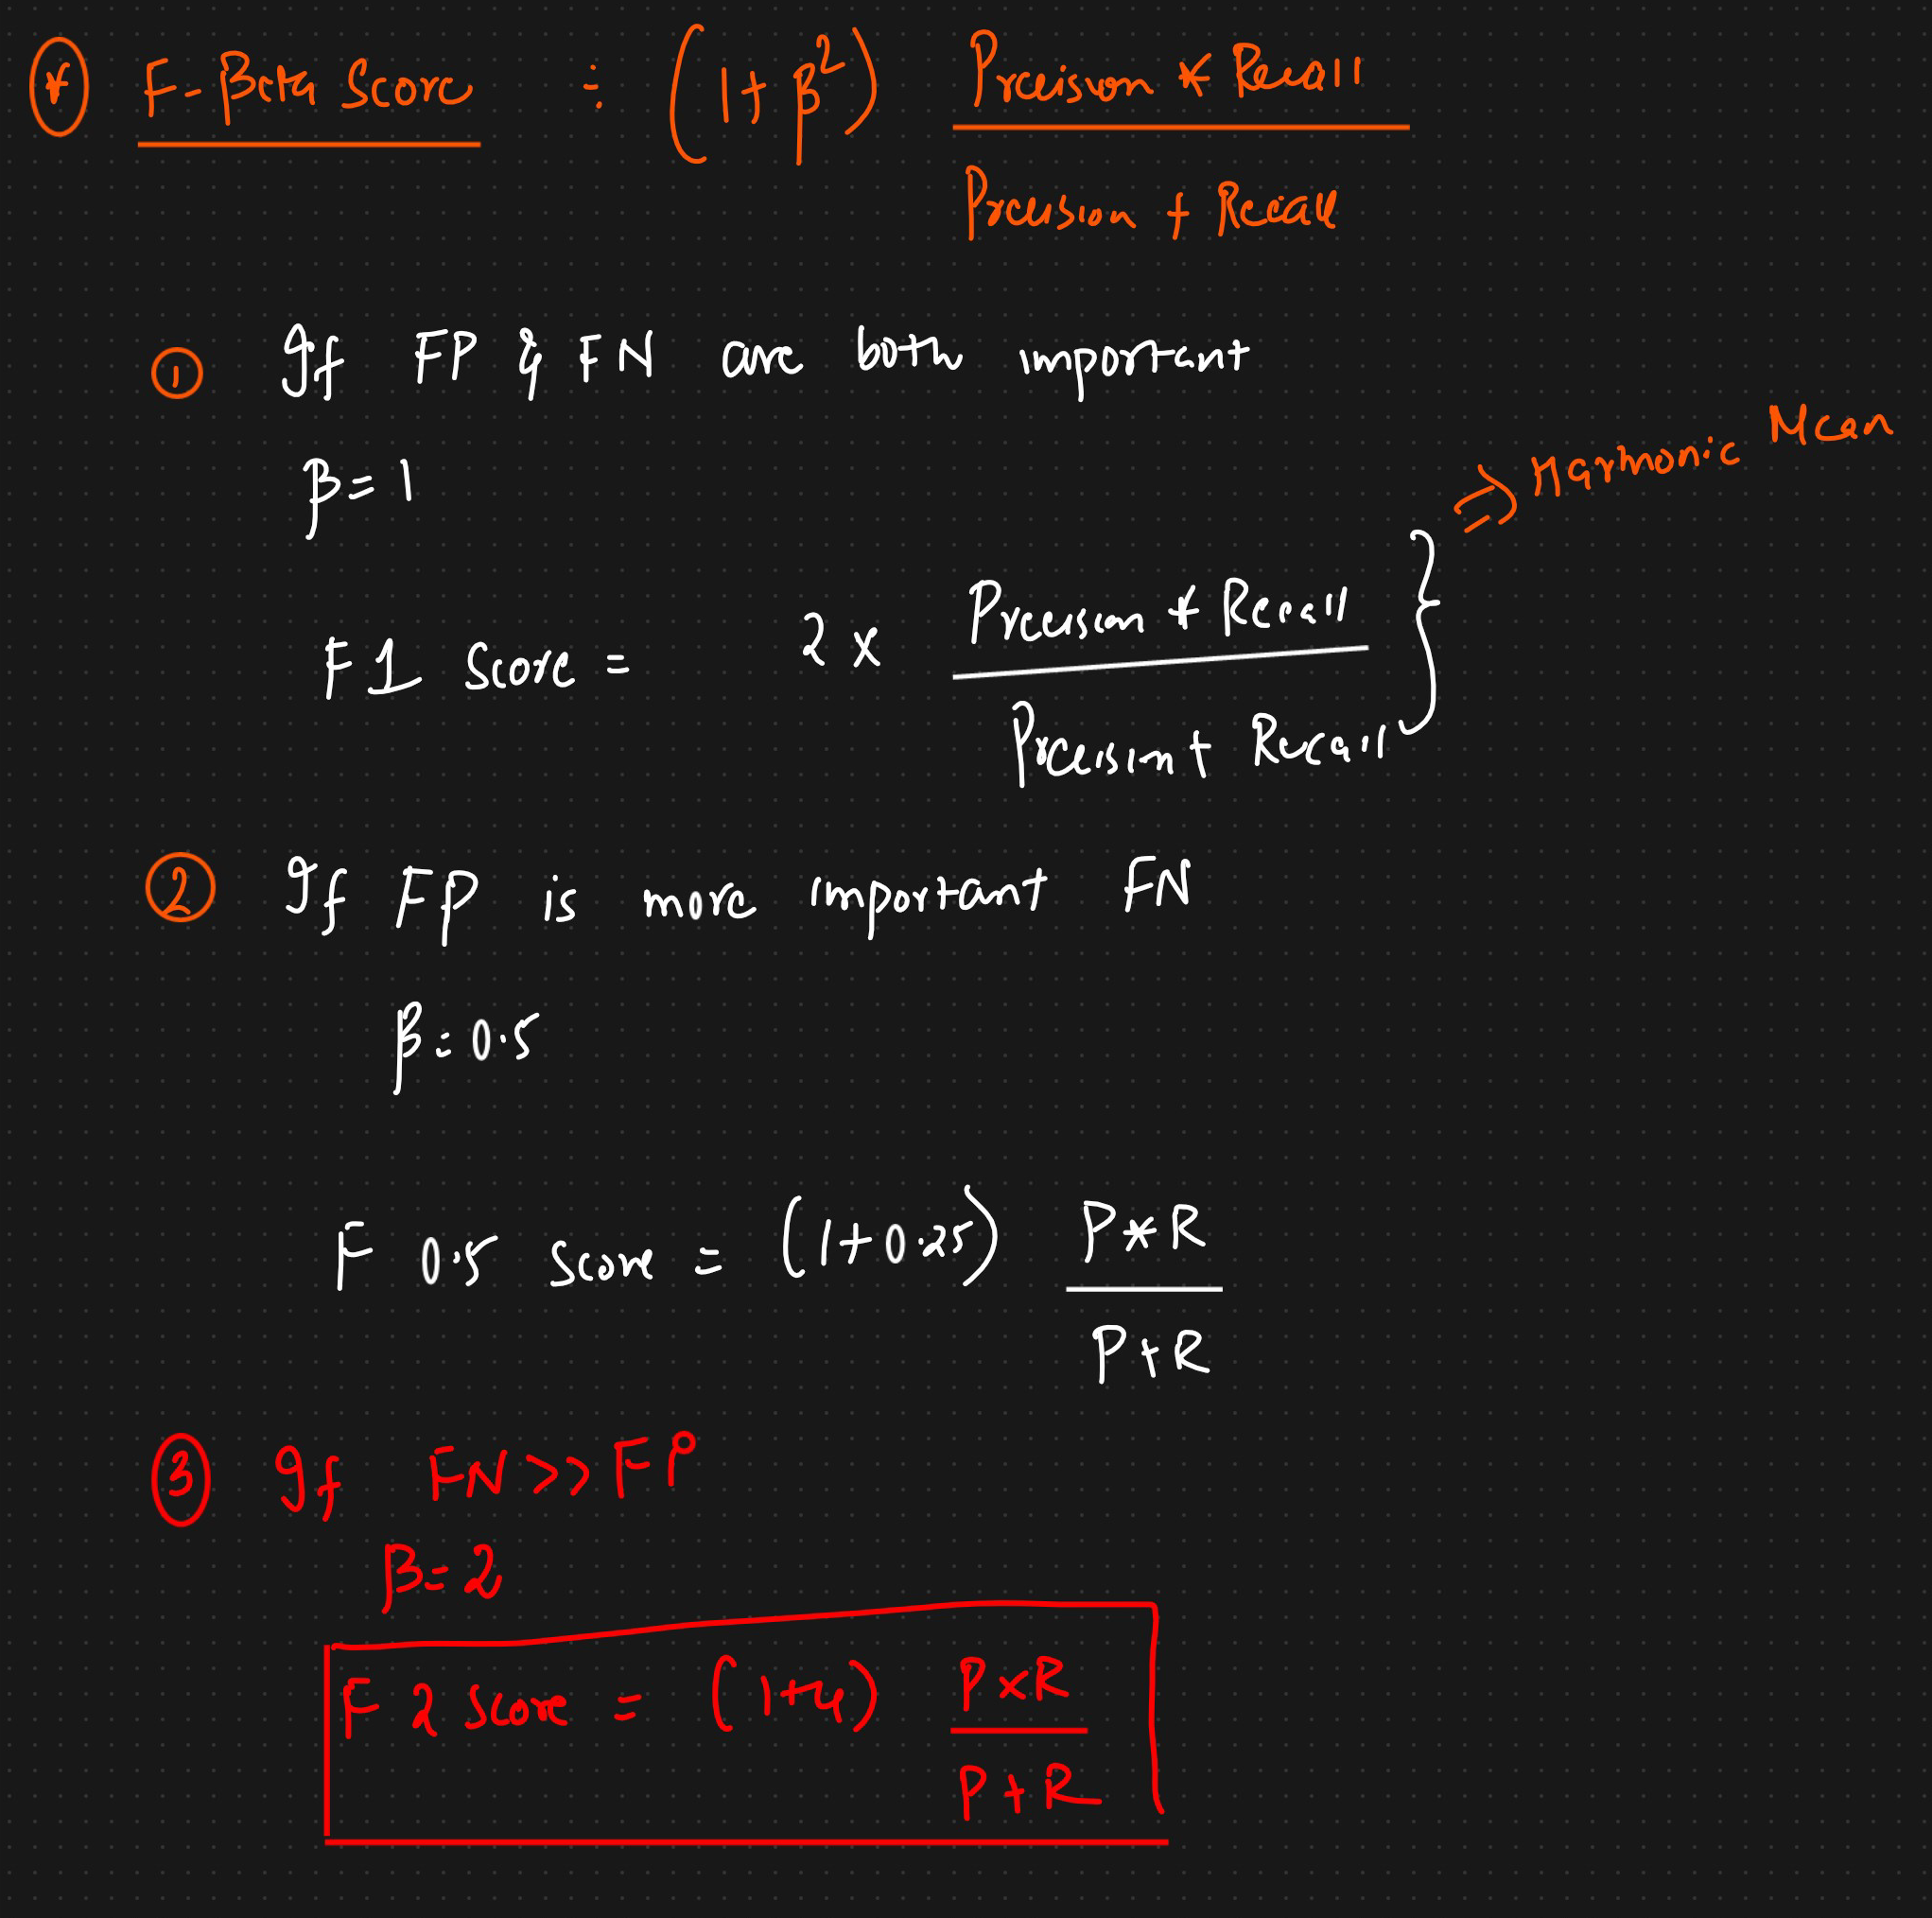 * F-Beta Score : (1+β²) Precision * Recall
Precision + Recall
① If FP & FN are both important
β=1
⇒ Harmonic Mean
F1 Score = 2 x Precision * Recall
Precision + Recall
② If FP is more important FN
β=0.5
F 0.5 Score = (1+0.25) P*R
P+R
③ If FN>>FP
β=2
F 2 Score = (1+4) PxR
P+R